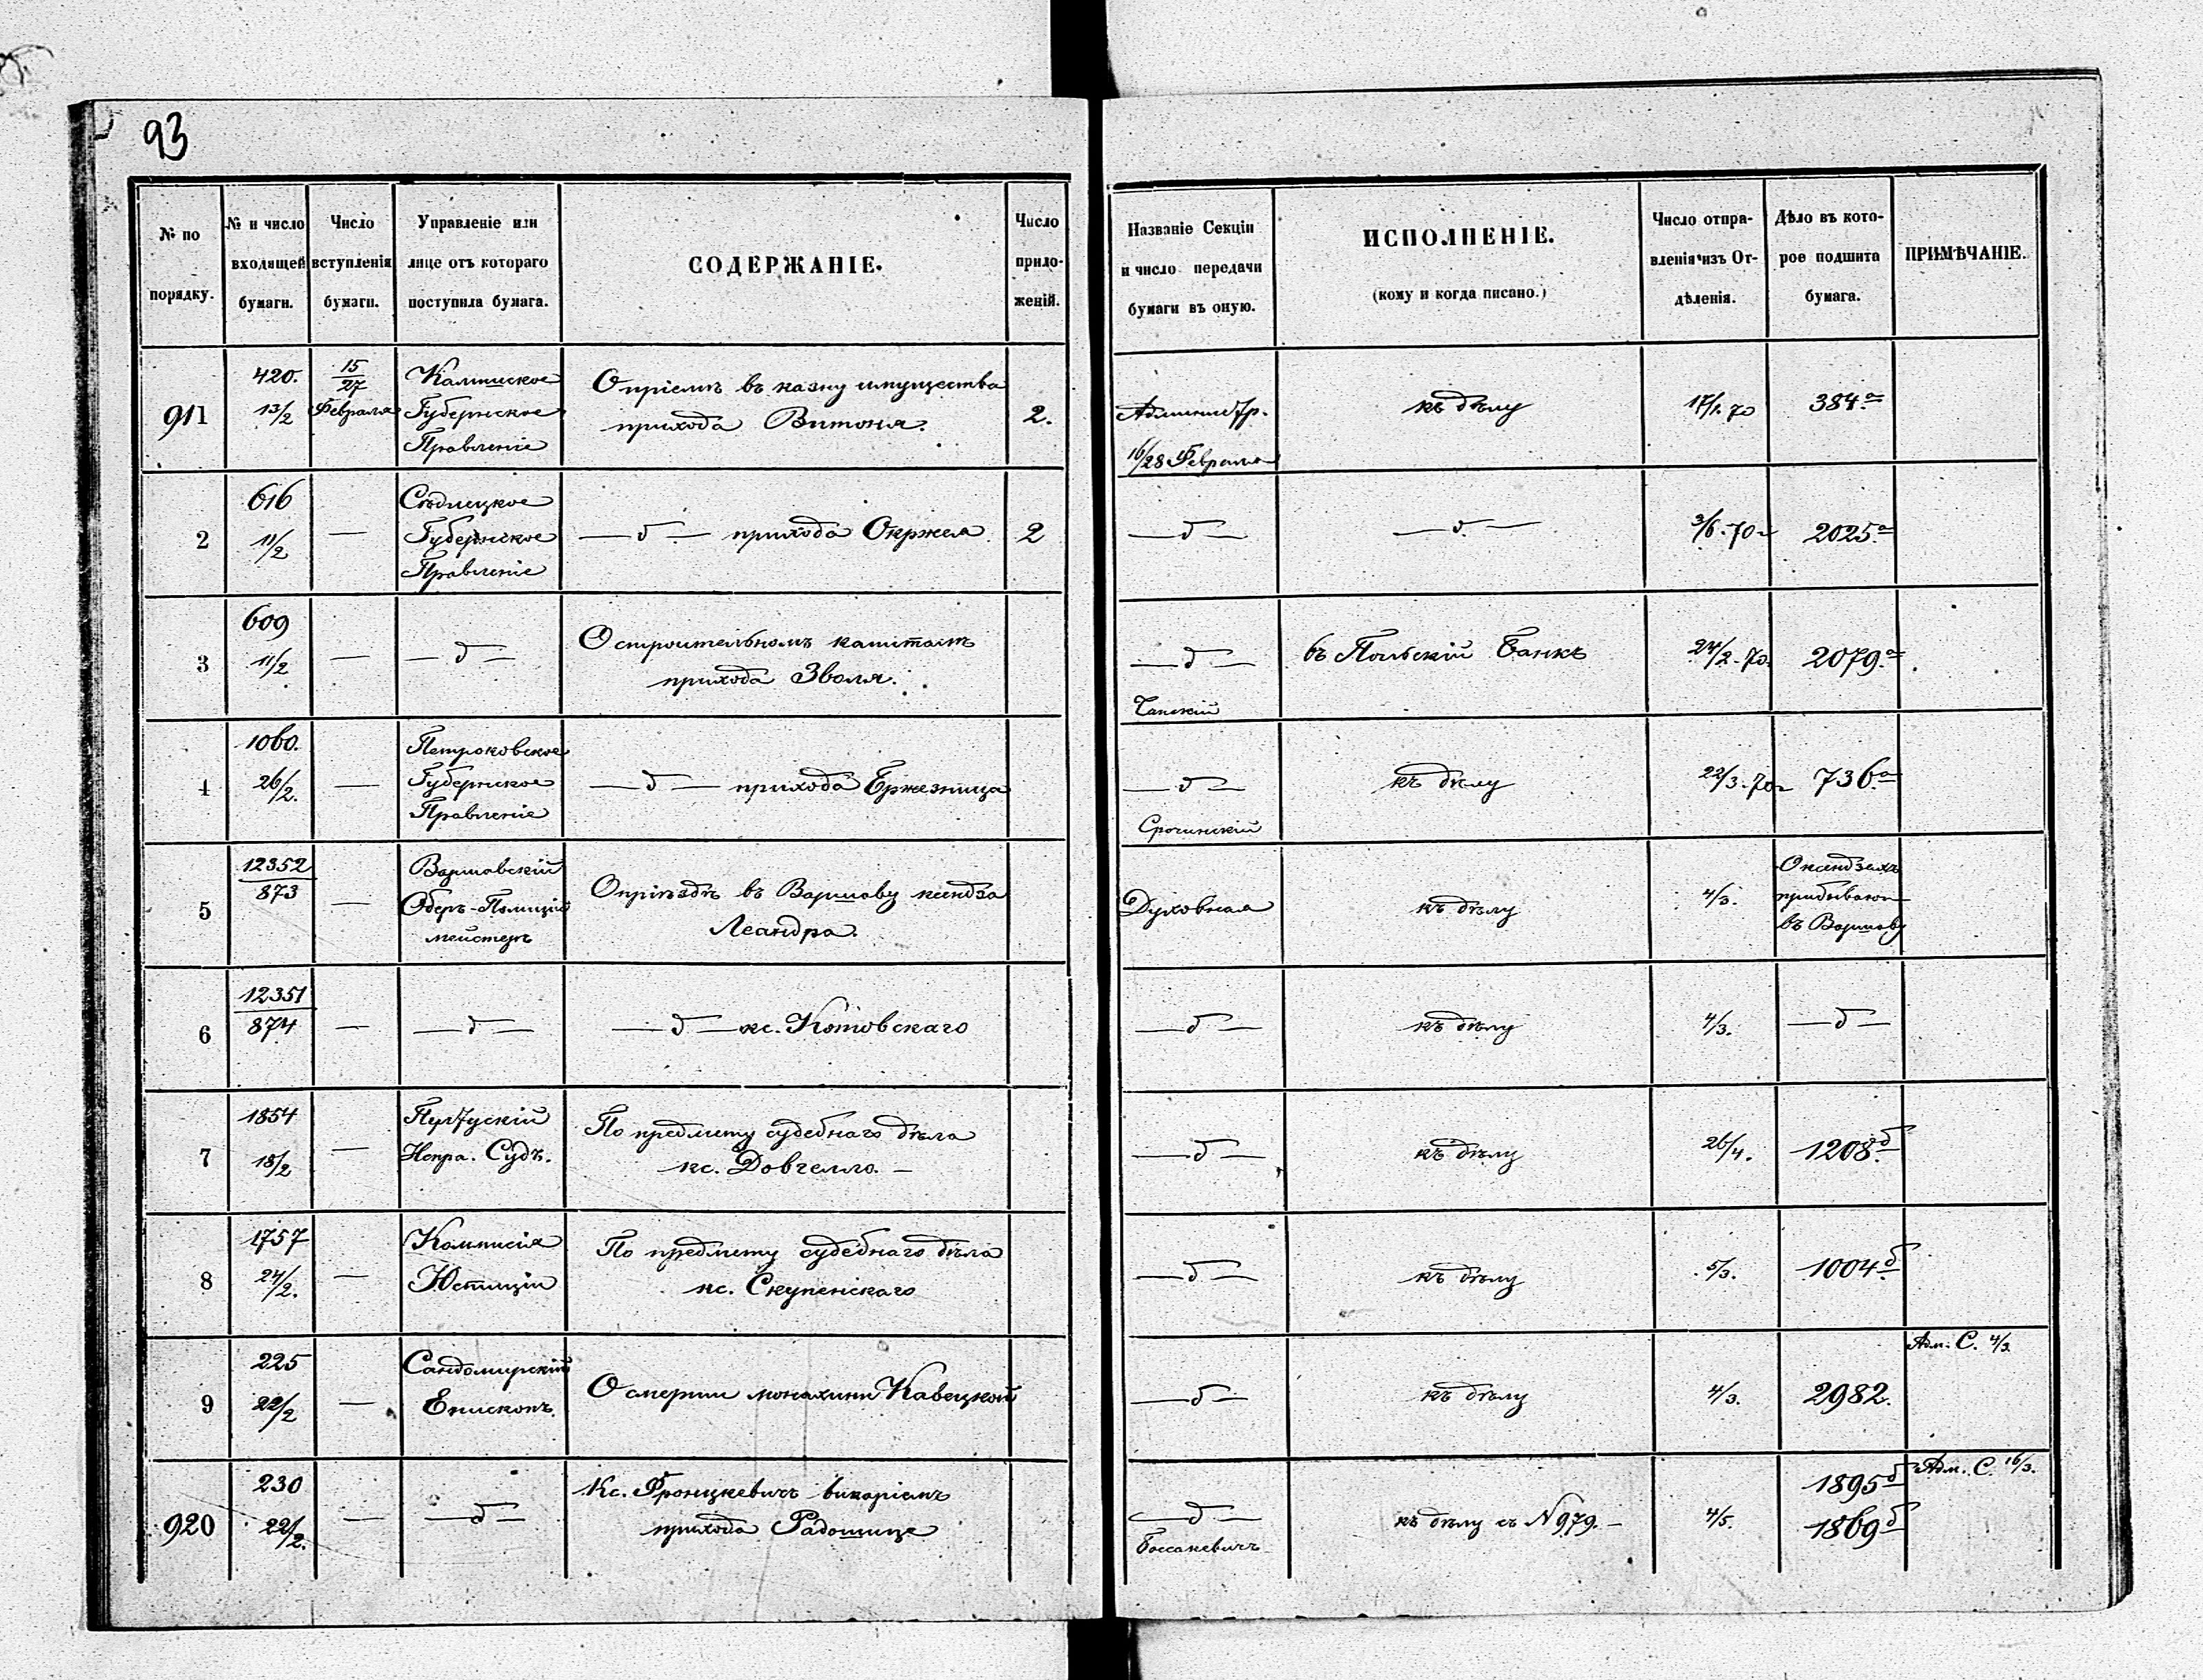 93
№ по порядку.
№ и число входящей бумаги.
Число вступленія бумаги.
Управленіе или лице отъ котораго поступила бумага.
СОДЕРЖАНІЕ.
Число приложеній.
Названіе Секціи и число передачи бумаги въ оную.
ИСПОЛНЕНІЕ.
(кому и когда писано.)
Число отправленія изъ Отдѣленія.
Дѣло въ которое подшита бумага.
ПРИМѢЧАНІЕ.
911
420.
13/2
15/27
Февраля
Калишское
Губернское
Правленіе
О пріемѣ въ казну имущества
прихода Витоня.
2.
Администр.
16/28 Февраля
къ дѣлу
384.а
2
616
11/2
—
Сѣдлецкое
Губернское
Правленіе
— д — прихода Окржея
2
— д —
— д. —
3/6. 70
2025.а
3
609
11/2
—
— д —
О строительномъ капиталѣ
прихода Зволя.
— д —
въ Польскій Банкъ
24/2. 70.
2079.а
4
1060.
26/2.
—
Петроковское
Губернское
Правленіе
— д — прихода Бржезница
— д —
Срочинскій
къ дѣлу
22/3. 70
736.а
5
12352
873
—
Варшавскій
Оберъ-Полицій
мейстеръ
О пріѣздѣ въ Варшаву ксендза
Леандра.
Духовная
къ дѣлу
4/3.
О ксендзахъ
прибывающ
въ Варшаву
6
12351
874
—
— д —
— д — кс. Котовскаго
— д —
къ дѣлу
4/3.
— д —
7
1854
18/2
—
Пултускій
Испра. Судъ.
По предмету судебнаго дѣла
кс. Довгелло. —
— д —
къ дѣлу
26/4.
1208.б
8
1757
24/2.
—
Коммисія
Юстиціи
По предмету судебнаго дѣла
кс. Скупенскаго
— д —
къ дѣлу
5/3.
1004.б
9
225
22/2
—
Сандомирскій
Епископъ.
О смерти монахини Кавецкой
— д —
къ дѣлу
4/3.
2982.
Адм. С. 4/3
920
230
22/2.
—
— д —
Кс. Фронцкевичъ викаріемъ
прихода Радошице
— д —
къ дѣлу съ № 979. —
4/5.
1895 б
1869 б
Адм. С. 16/3.